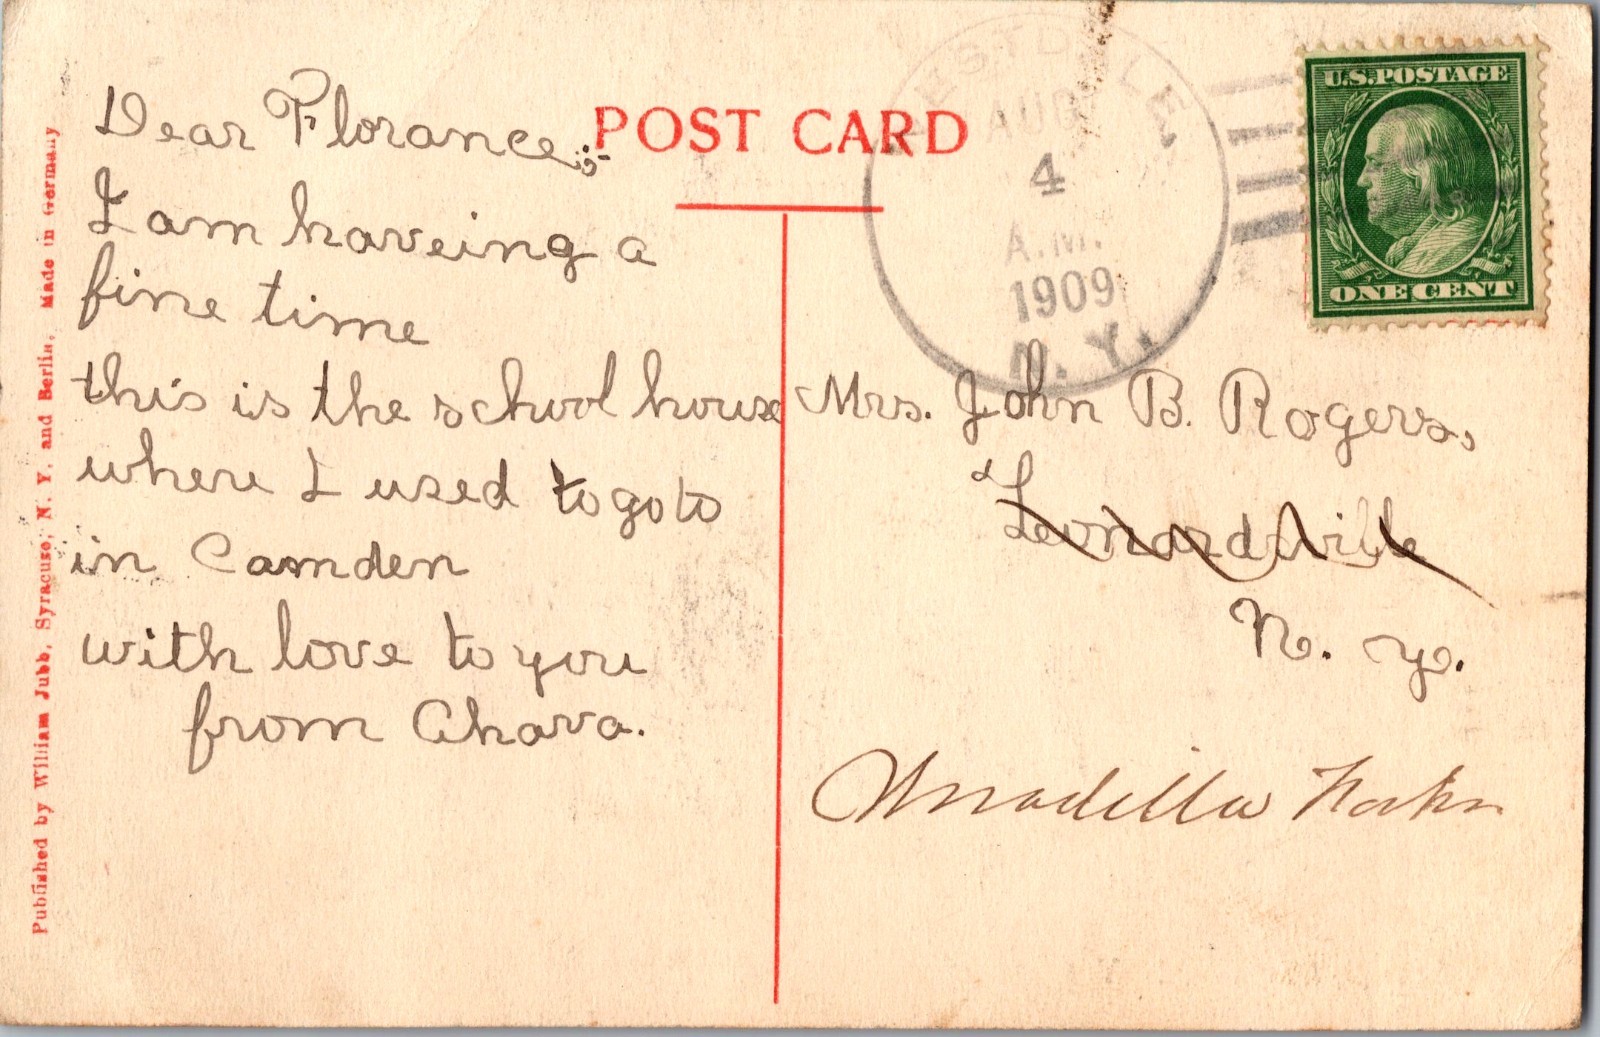 Published by William Jubb, Syracuse, N. Y. and Berlin. Made in Germany
POST CARD
WESTDALE
AUG
4
A.M.
1909
N.Y.
U.S. POSTAGE
ONE CENT
Dear Florance;-
I am haveing a
fine time
this is the school house
where I used to go to
in Camden
with love to you
from Ahava.
Mrs. John B. Rogers,
Leonardsville
N. Y.
Unadilla Forks